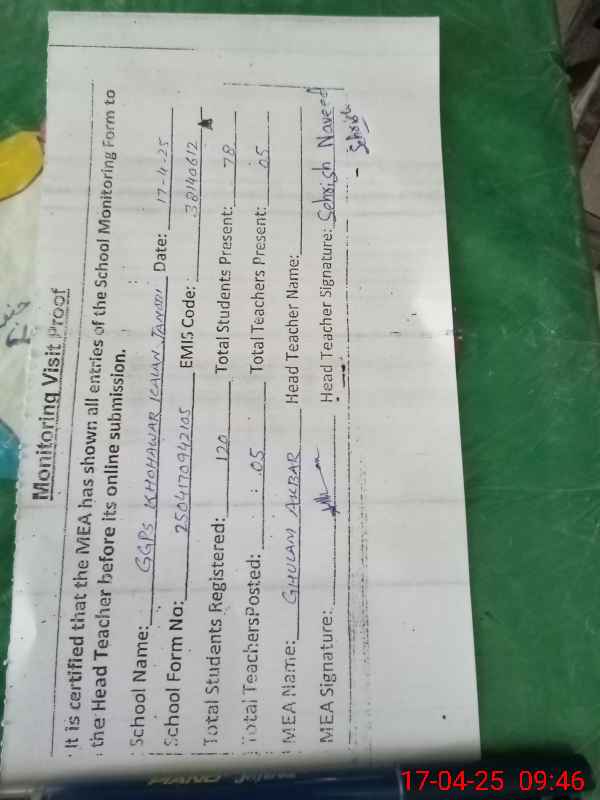 Monitoring Visit Proof
It is certified that the MEA has shown all entries of the School Monitoring Form to
the Head Teacher before its online submission.
School Name: GGPS KHOHAWAR KALAN JANOBI Date: 17-4-25
School Form No: 2504170942105 EMIS Code: 38140612
Total Students Registered: 120 Total Students Present: 78
Total TeachersPosted: 05 Total Teachers Present: 05
MEA Name: GHULAM AKBAR Head Teacher Name: Sehrish Naveed
MEA Signature: Head Teacher Signature: Sehrish
PIANO
17-04-25 09:46